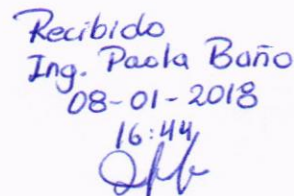 Recibido
Ing. Paola Baño
08-01-2018
16:44